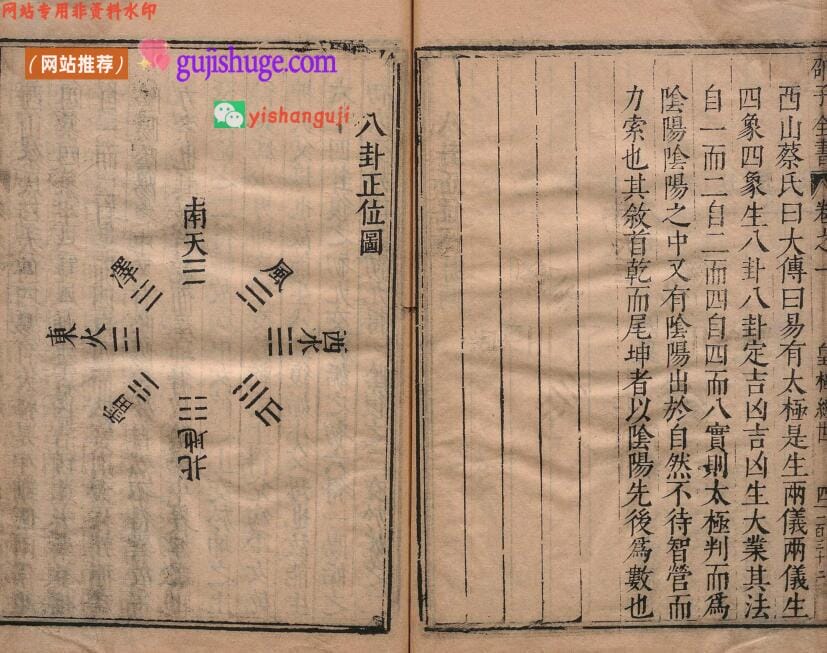 网站专用非资料水印
（网站推荐）
gujishuge.com
yishanguji
邵子全書
卷之一
皇極經世
西山蔡氏曰大傳曰易有太極是生兩儀兩儀生
四象四象生八卦八卦定吉凶吉凶生大業其法
自一而二自二而四自四而八實則太極判而為
陰陽陰陽之中又有陰陽出於自然不待智營而
力索也其敘首乾而尾坤者以陰陽先後爲數也
八卦正位圖
南天☰
風☴
西水☵
山☶
北地☷
雷☳
東火☲
澤☱